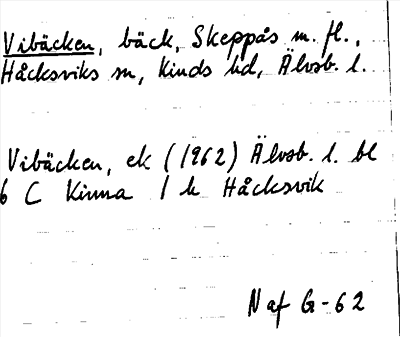 Vibäcken, bäck, Skeppås m. fl.,
Håcksviks sn, Kinds hd, Älvsb. l.
Vibäcken, ek (1962) Älvsb. l. bl
6 C Kinna 1 h Håcksvik
N af G-62